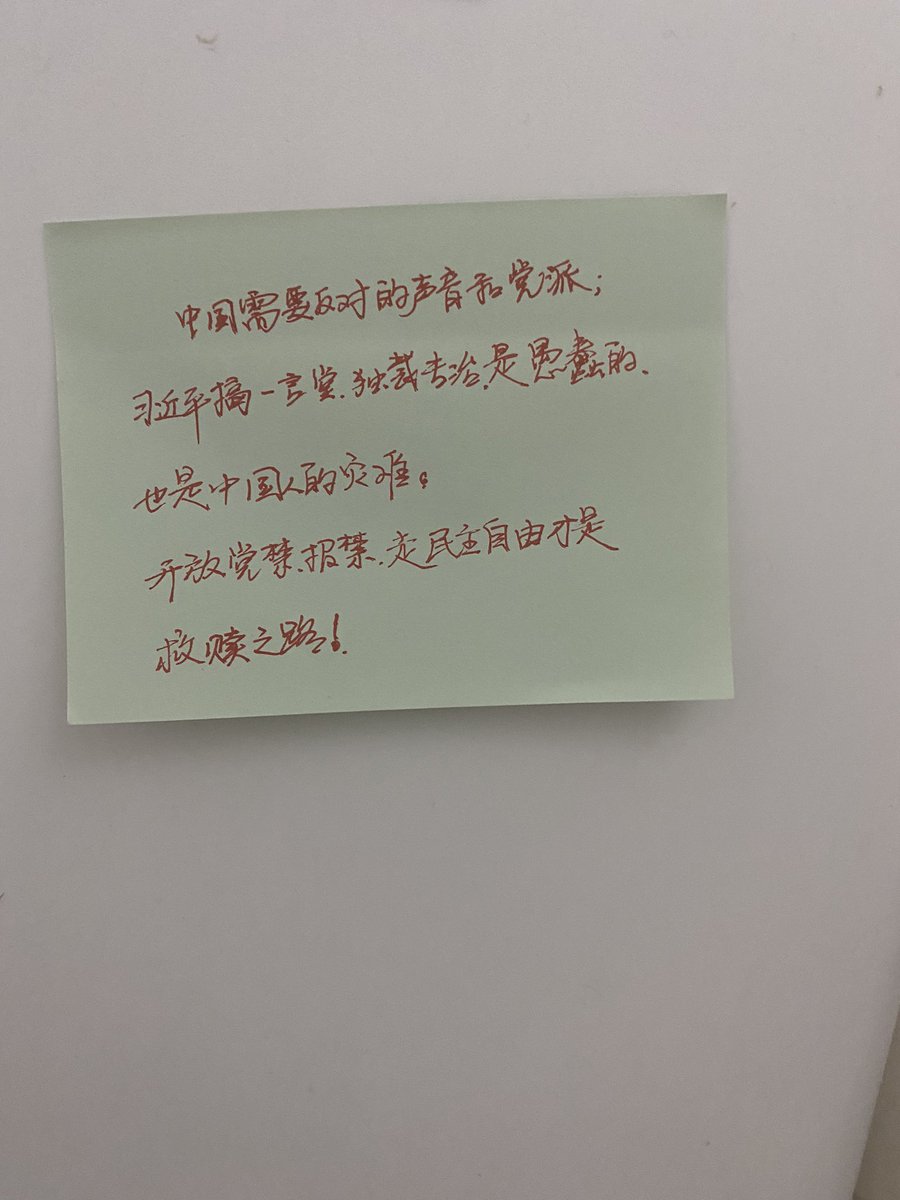 中国需要反对的声音和党派；
习近平搞一言堂、独裁专治、是愚蠢的、
也是中国人的灾难。
开放党禁、报禁、走民主自由才是
救赎之路！